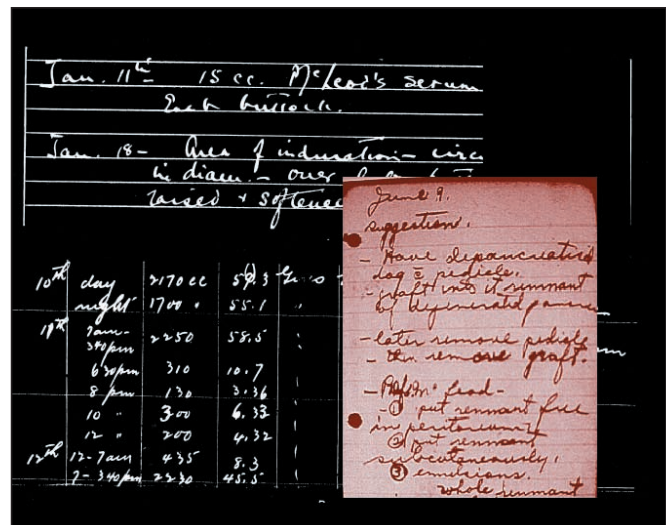 Jan. 11th 15 cc. McLeod's serum
Each buttock.
Jan. 18 - Area of induration - circ
in diam. - over
raised + softene
10th day 2170 cc 5 .3
night 1700 " 55.1 "
11th 7am-
340pm 2250 58.5
630pm 310 10.7
8 pm 130 3.36
10 " 300 6.33
12 " 200 4.32
12th 12-7am 435 8.3
7-340pm 2230 45.5
June 9.
suggestion.
- Have depancreatized
dog = pedicle.
- graft into it remnant
of degenerated pancre
- later remove pedicle
- then remove graft.
- Prof. McLeod -
① put remnant free
in peritoneum
② put remnant
subcutaneously.
③ emulsions.
whole remnant